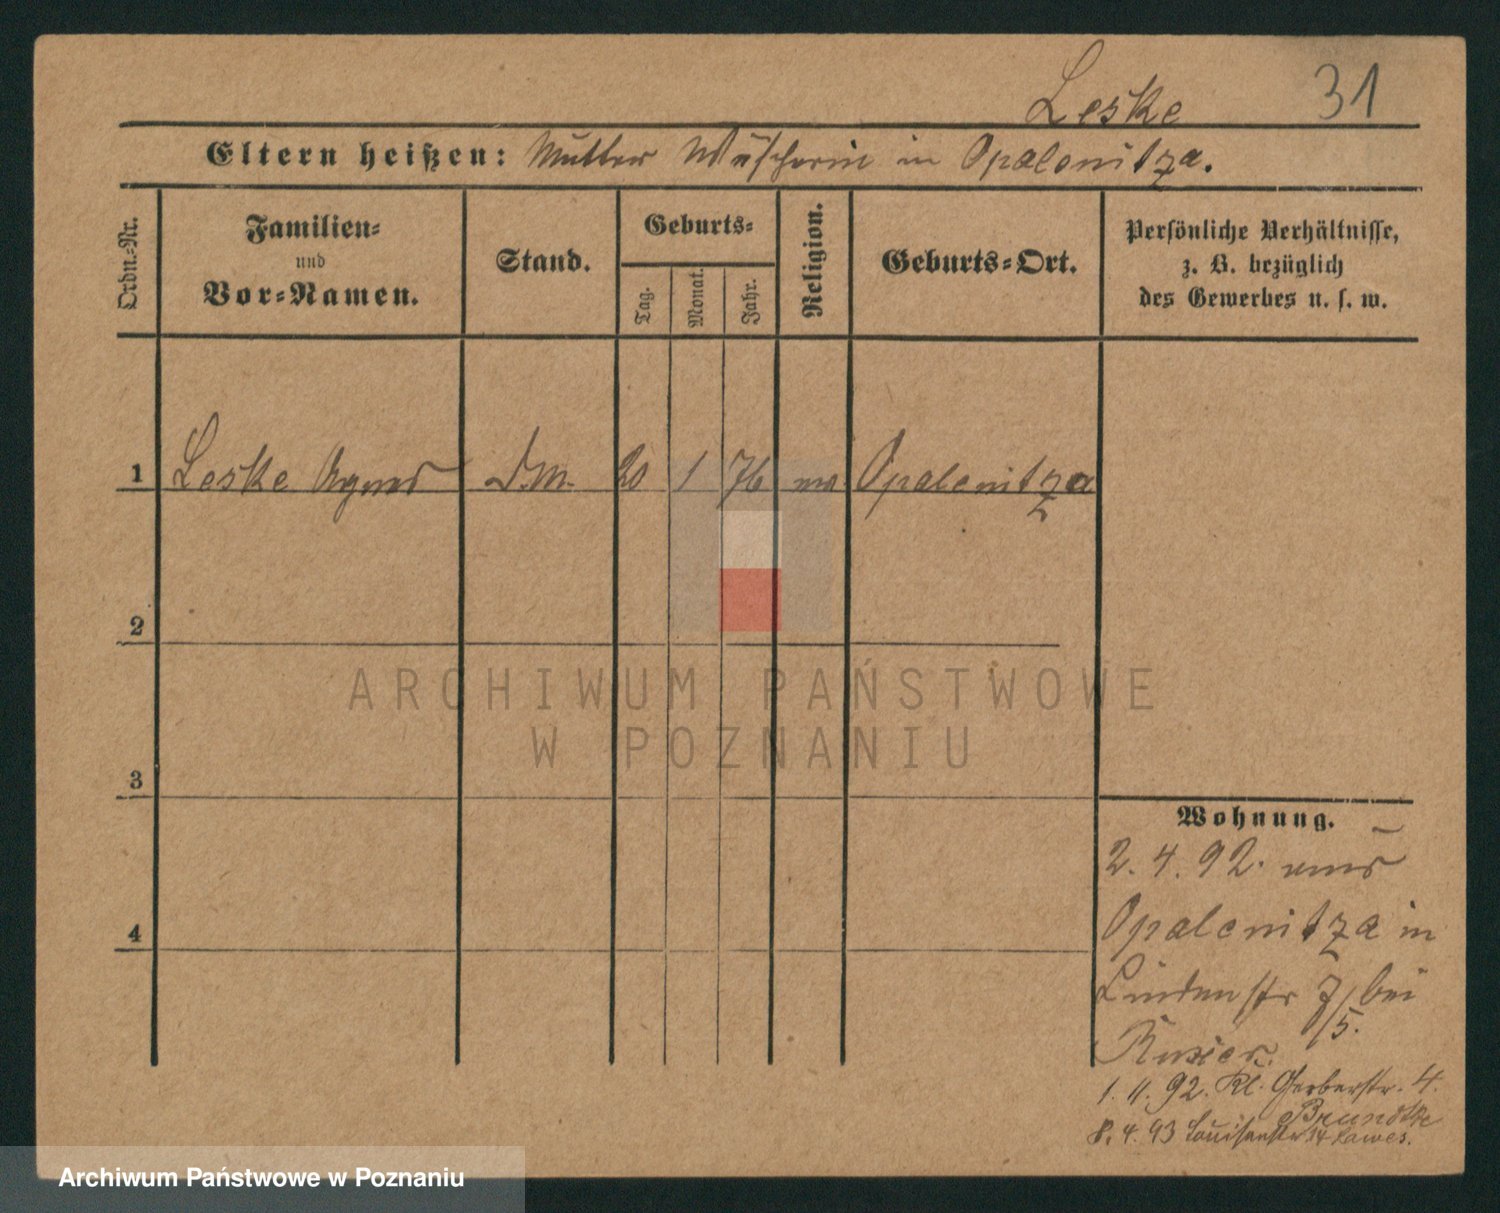 Leske 31
Eltern heißen: Mutter Wäscherin in Opalenitza.
Ordn.-Nr.
Familien-
und
Vor-Namen.
Stand.
Geburts-
Tag.
Monat.
Jahr.
Religion.
Geburts-Ort.
Persönliche Verhältnisse,
z. B. bezüglich
des Gewerbes u. s. w.
1 Leske Agnes D.M. 20 1 76 Opalenitza
2
ARCHIWUM PAŃSTWOWE
W POZNANIU
3
Wohnung.
2. 4. 92. aus
4
Opalenitza in
Lindenstr 7/5. bei
1. 11. 92. Kl. Gerberstr. 4.
Brundtke
8. 4. 93 Louisenstr 14
Archiwum Państwowe w Poznaniu